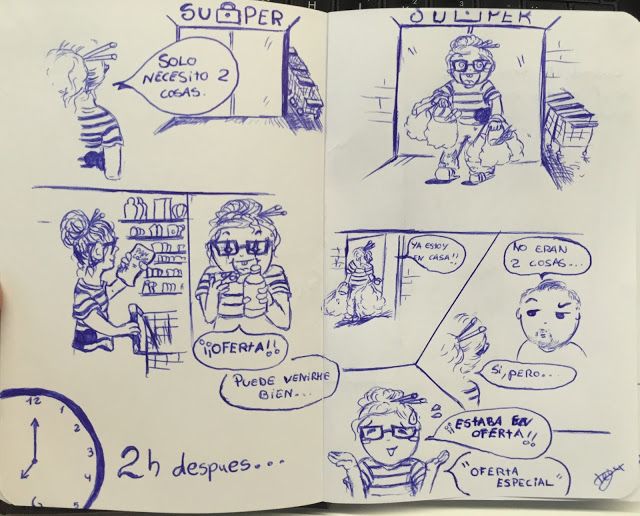 SUPER
SOLO
NECESITO 2
COSAS.
¡¡OFERTA!!
PUEDE VENIRME
BIEN...
12
1
2
3
4
5
6
2h despues...
SUPER
YA ESTOY
EN CASA!!
NO ERAN
2 COSAS...
SI, PERO...
¡¡ESTABA EN
OFERTA!!
"OFERTA
ESPECIAL"